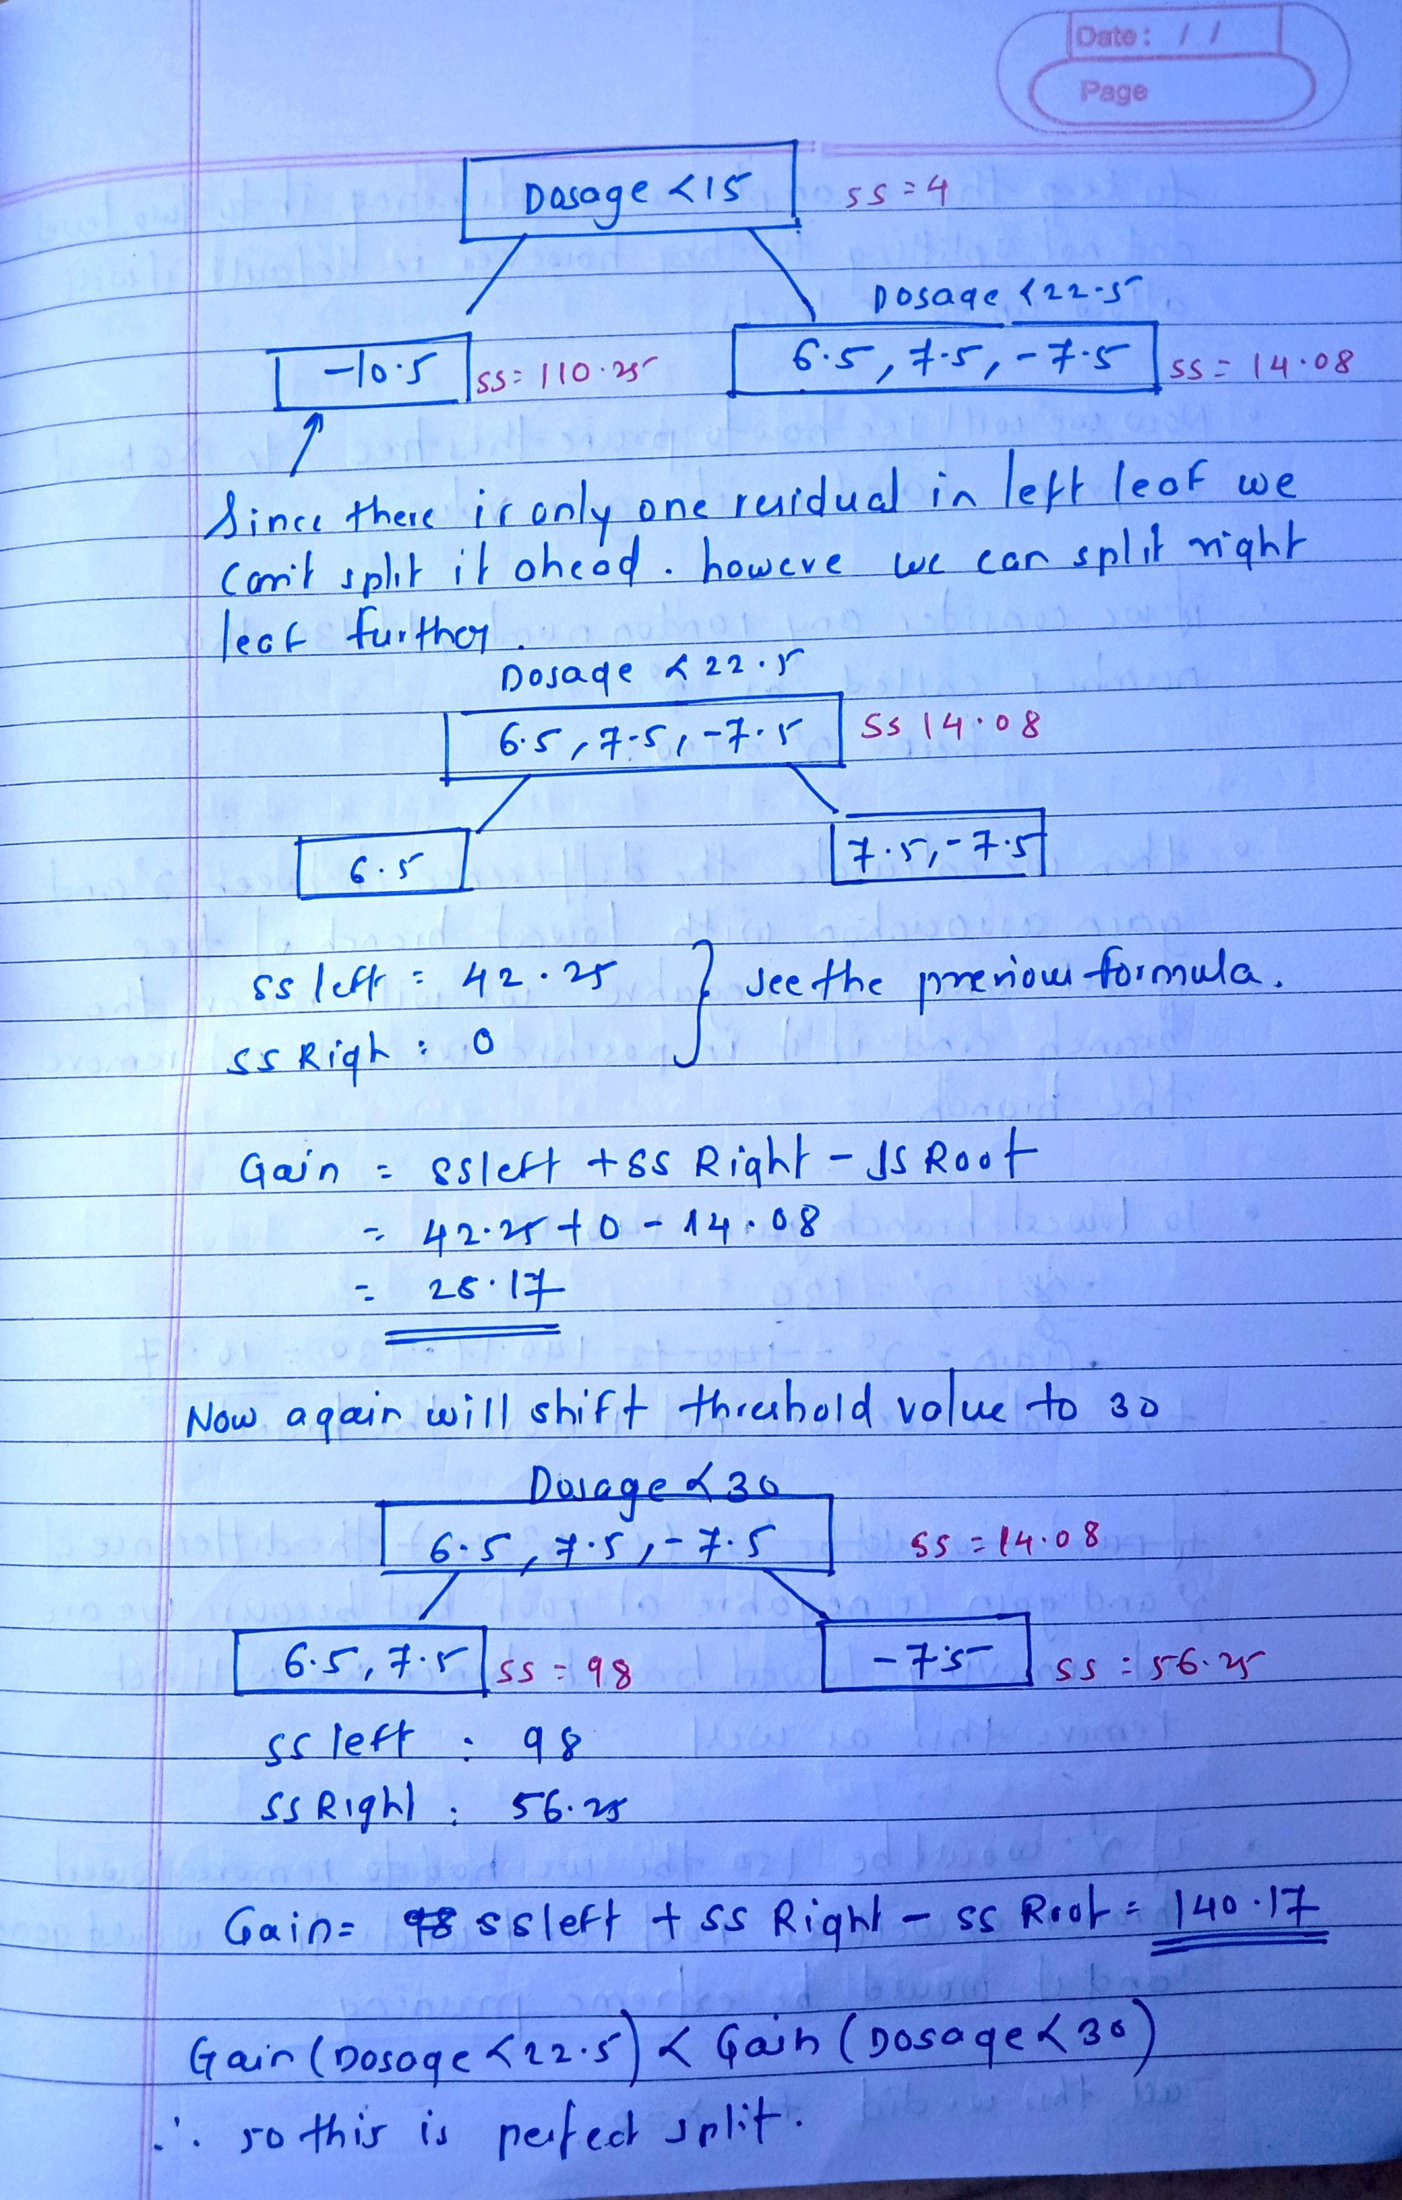 Date: / /
Page
Dosage < 15 SS = 4
Dosage < 22.5
-10.5 SS = 110.25 6.5, 7.5, -7.5 SS = 14.08
Since there is only one residual in left leaf we
can't split it ahead. howeve we can split right
leaf further.
Dosage < 22.5
6.5, 7.5, -7.5 SS 14.08
6.5 7.5, -7.5
SS left = 42.25 } see the previous formula.
SS Righ : 0
Gain = SS left + SS Right - SS Root
= 42.25 + 0 - 14.08
= 28.17
Now again will shift threshold value to 30
Dosage < 30
6.5, 7.5, -7.5 SS = 14.08
6.5, 7.5 SS = 98 -7.5 SS = 56.25
SS left : 98
SS Right : 56.25
Gain = SS left + SS Right - SS Root = 140.17
Gain (Dosage < 22.5) < Gain (Dosage < 30)
∴ so this is perfect split.